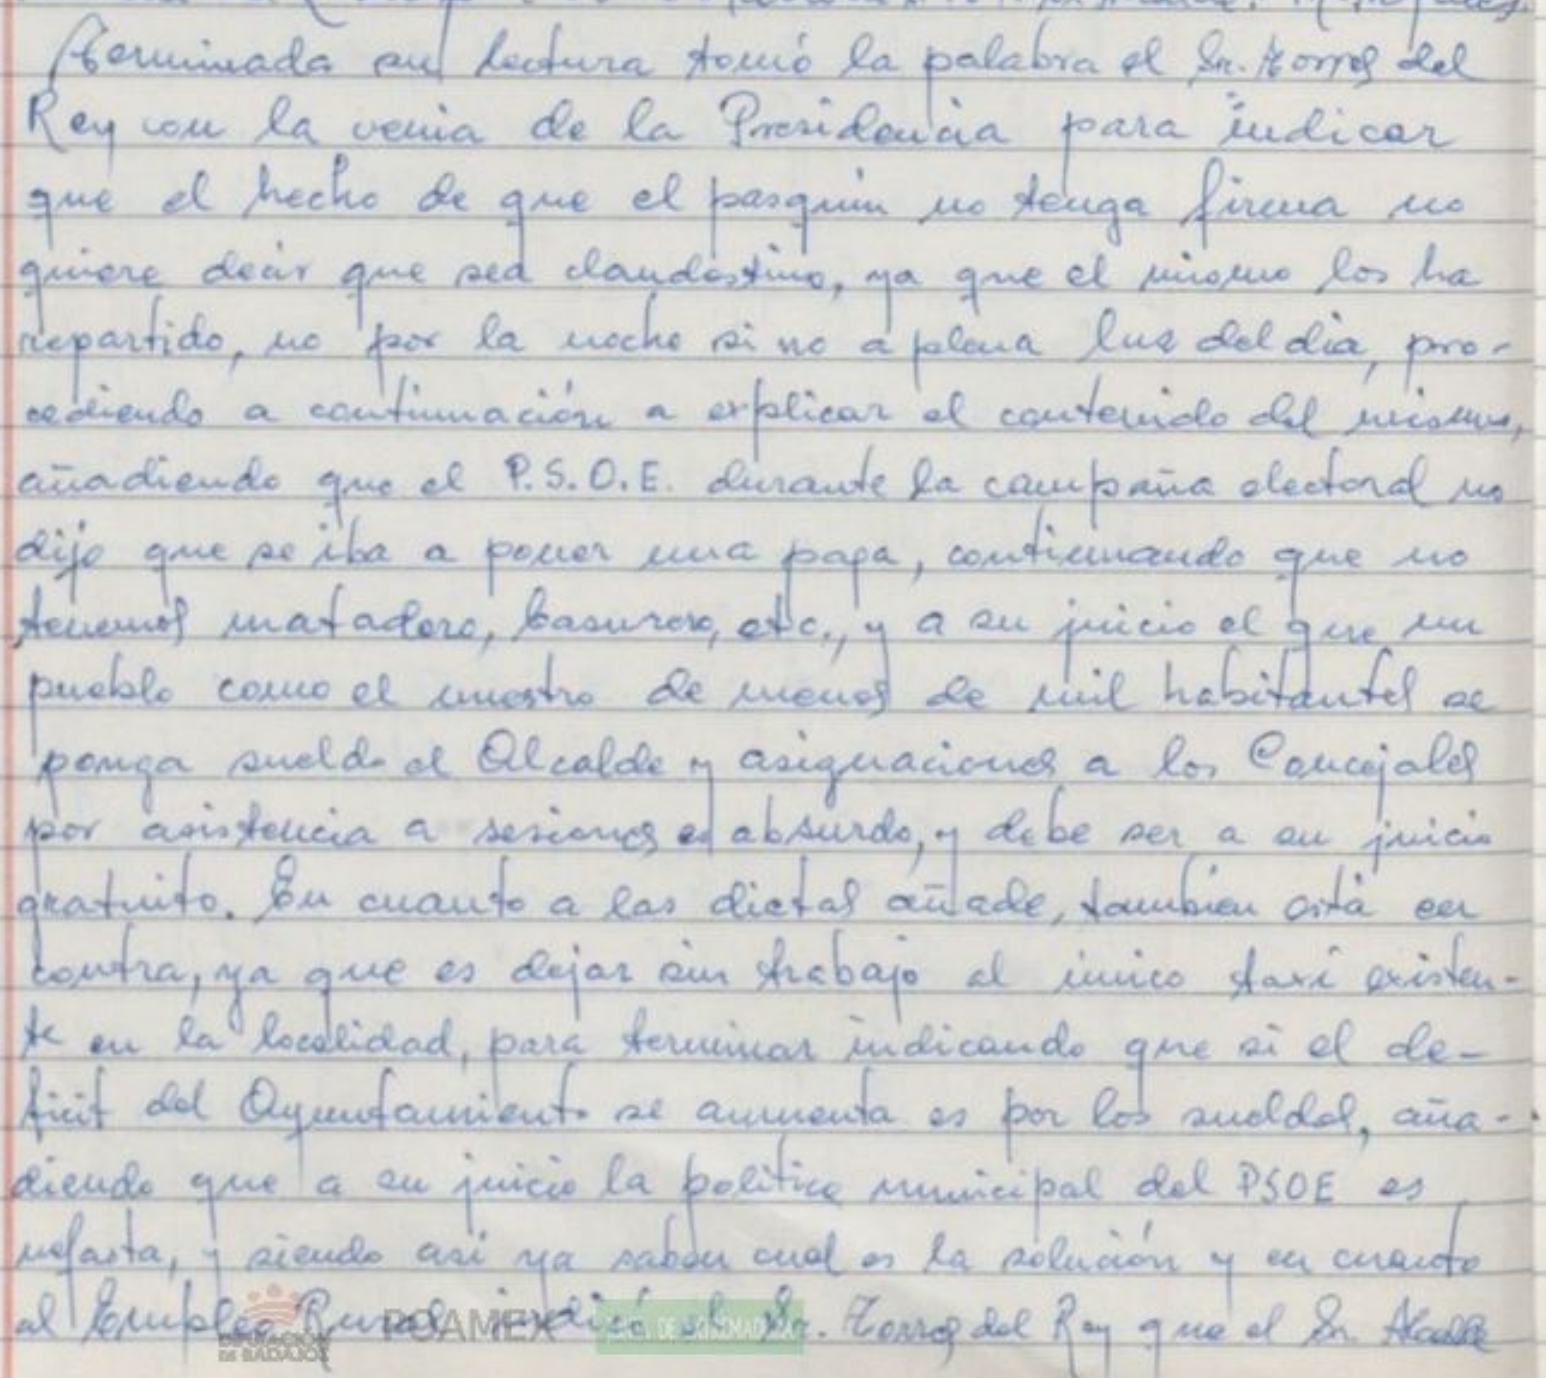 Terminada su lectura tomó la palabra el Sr. Torres del
Rey con la venia de la Presidencia para indicar
que el hecho de que el pasquin no tenga firma no
quiere decir que sea clandestino, ya que el mismo los ha
repartido, no por la noche si no a plena luz del dia, pro-
cediendo a continuación a explicar el contenido del mismo,
añadiendo que el P.S.O.E. durante la campaña electoral no
dijo que se iba a poner una paga, continuando que no
tenemos matadero, basurero, etc., y a su juicio el que un
pueblo como el nuestro de menos de mil habitantes se
ponga sueldo el Alcalde y asignaciones a los Concejales
por asistencia a sesiones es absurdo, y debe ser a su juicio
gratuito. En cuanto a las dietas añade, tambien está en
contra, ya que es dejar sin trabajo al único taxi existen-
te en la localidad, para terminar indicando que si el de-
ficit del Ayuntamiento se aumenta es por los sueldos, aña-
diendo que a su juicio la politica municipal del PSOE es
nefasta, y siendo asi ya saben cual es la solución y en cuanto
al Empleo Rural indicó el Sr. Torres del Rey que el Sr. Alcalde
DIPUTACIÓN
DE BADAJOZ
ROAMEX